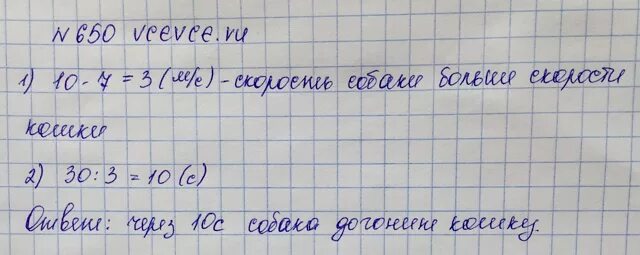 N 650 vcevce.ru
1) 10 - 7 = 3 (м/с) - скорость собаки больше скорости
кошки
2) 30 : 3 = 10 (с)
Ответ: через 10с собака догонит кошку.